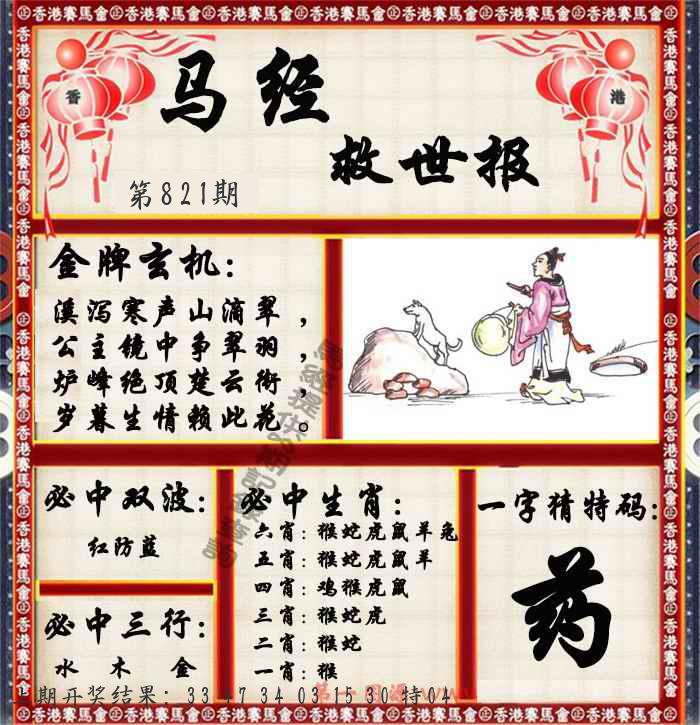 香港賽馬會
香
港
马经
救世报
第821期
金牌玄机：
溪泻寒声山滴翠，
公主镜中争翠羽，
炉峰绝顶楚云衔，
岁暮生情赖此花。
必中双波：
红防蓝
必中三行：
水 木 金
必中生肖：
六肖：猴蛇虎鼠羊兔
五肖：猴蛇虎鼠羊
四肖：鸡猴虎鼠
三肖：猴蛇虎
二肖：猴蛇
一肖：猴
一字猜特码：
药
期开奖结果：33 47 34 03 15 30 特04